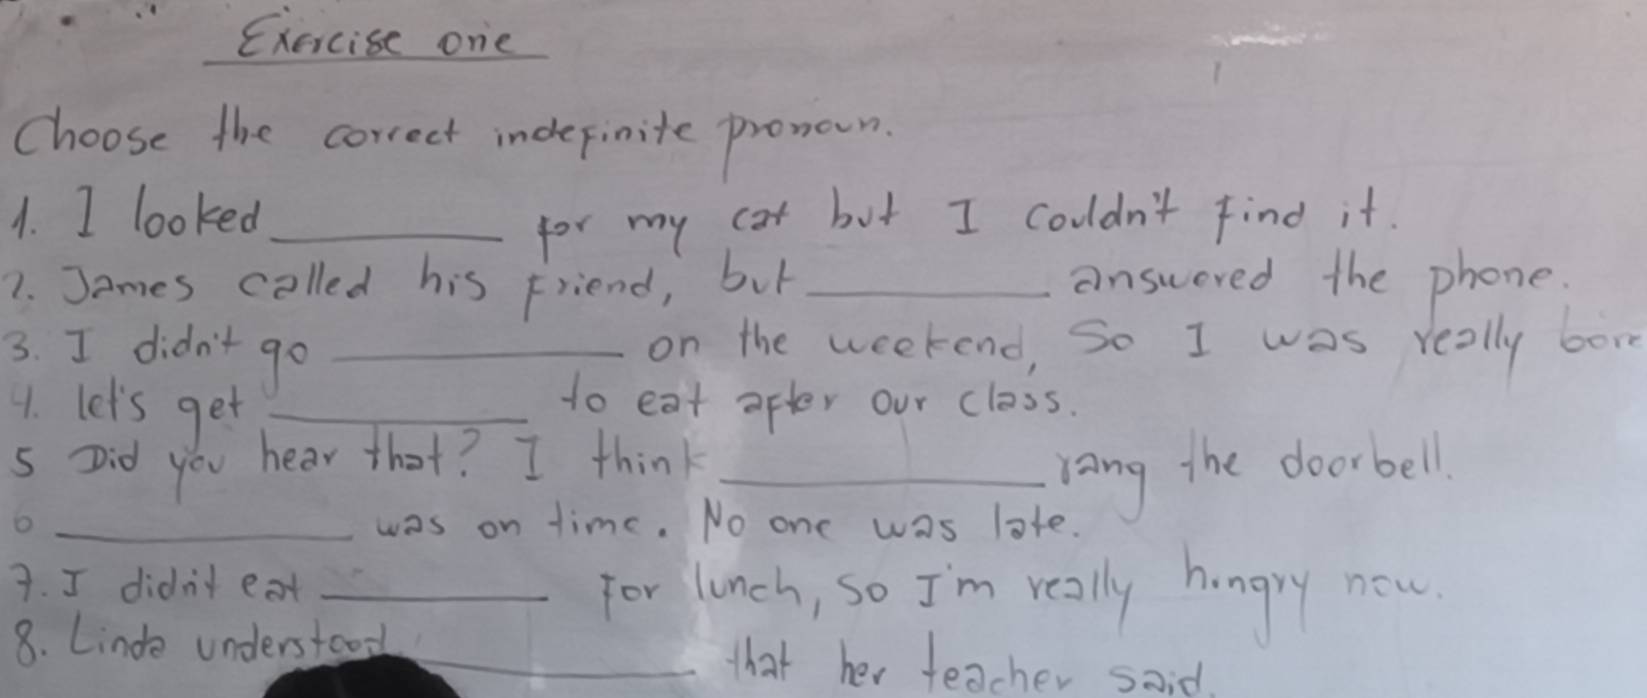 Exercise one
Choose the correct indefinite pronoun.
1. I looked ________ for my cat but I couldn't find it.
2. James called his friend, but ________ answered the phone.
3. I didn't go ________ on the weekend, So I was really bore
4. let's get ________ to eat after our class.
5 Did you hear that? I think ________ rang the doorbell.
6 ________ was on time. No one was late.
7. I didn't eat ________ for lunch, so I'm really hungry now.
8. Linda understood ________ that her teacher said.